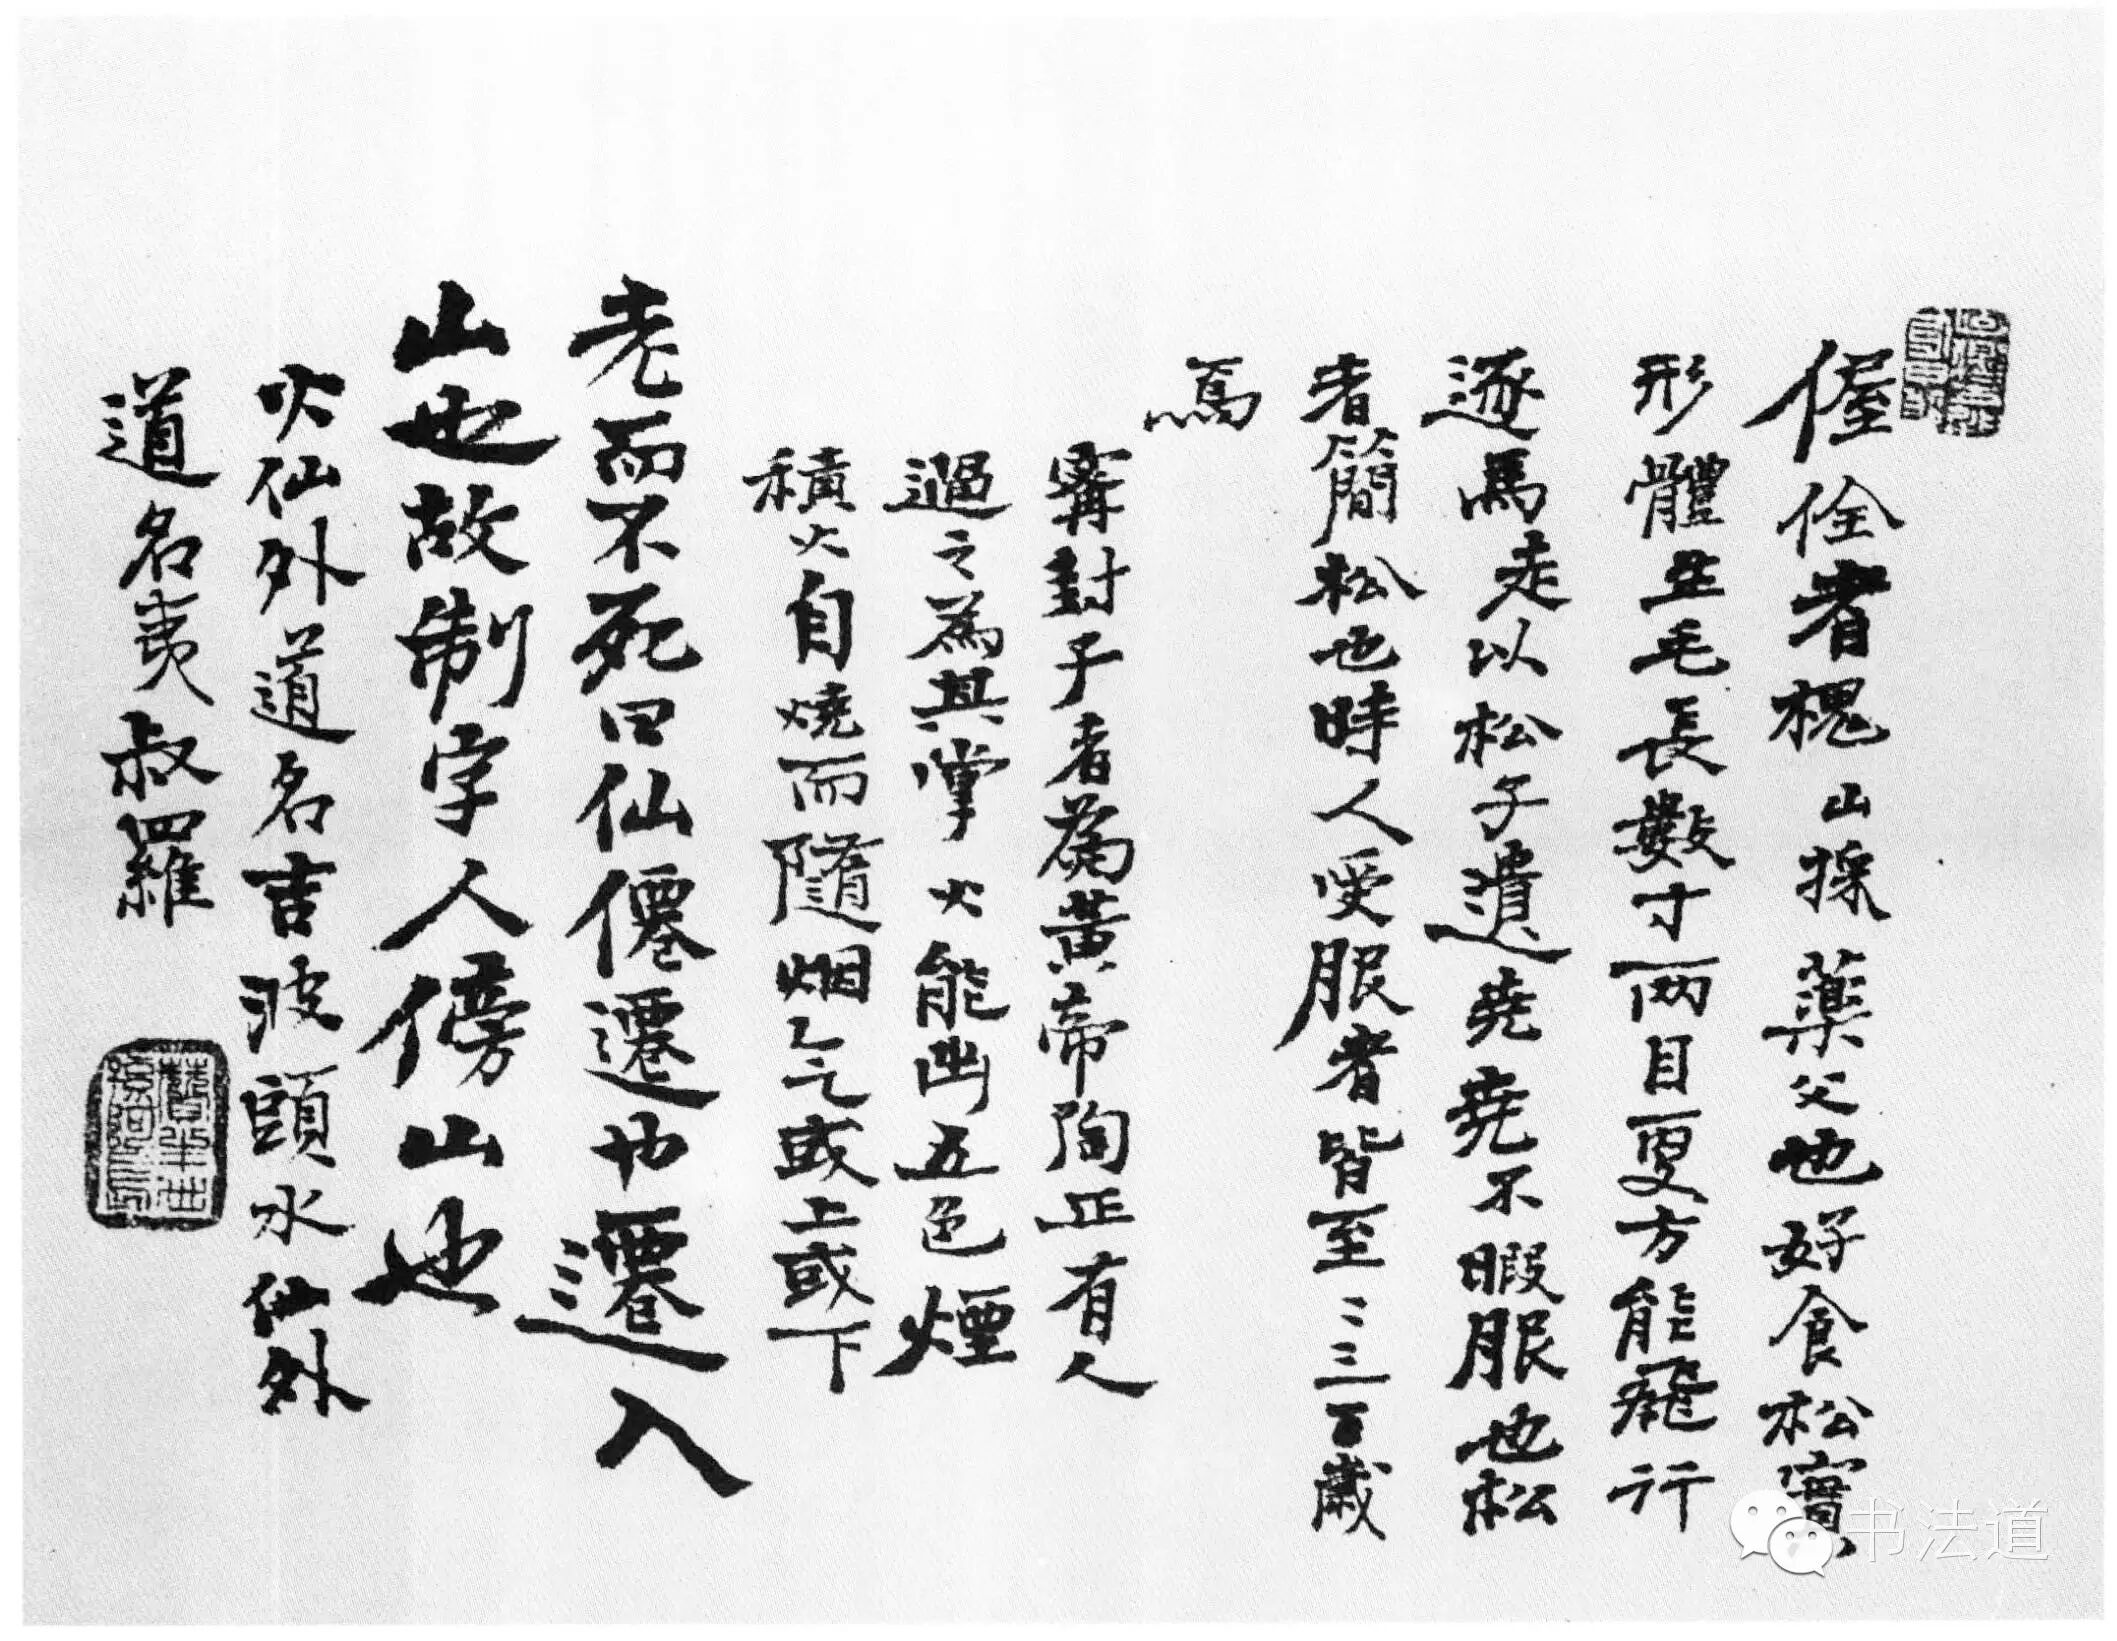 偓佺者槐山採藥父也好食松實
形體生毛長數寸兩目更方能飛行
逐馬走以松子遺堯堯不暇服也松
者簡松也時人受服者皆至二三百歲
焉
甯封子者為黃帝陶正有人
過之為其掌火能出五色煙
積火自燒而隨烟气或上或下
老而不死曰仙僊遷也遷入
山也故制字人傍山也
火仙外道名吉波頭水仙外
道名夷叔羅
书法道